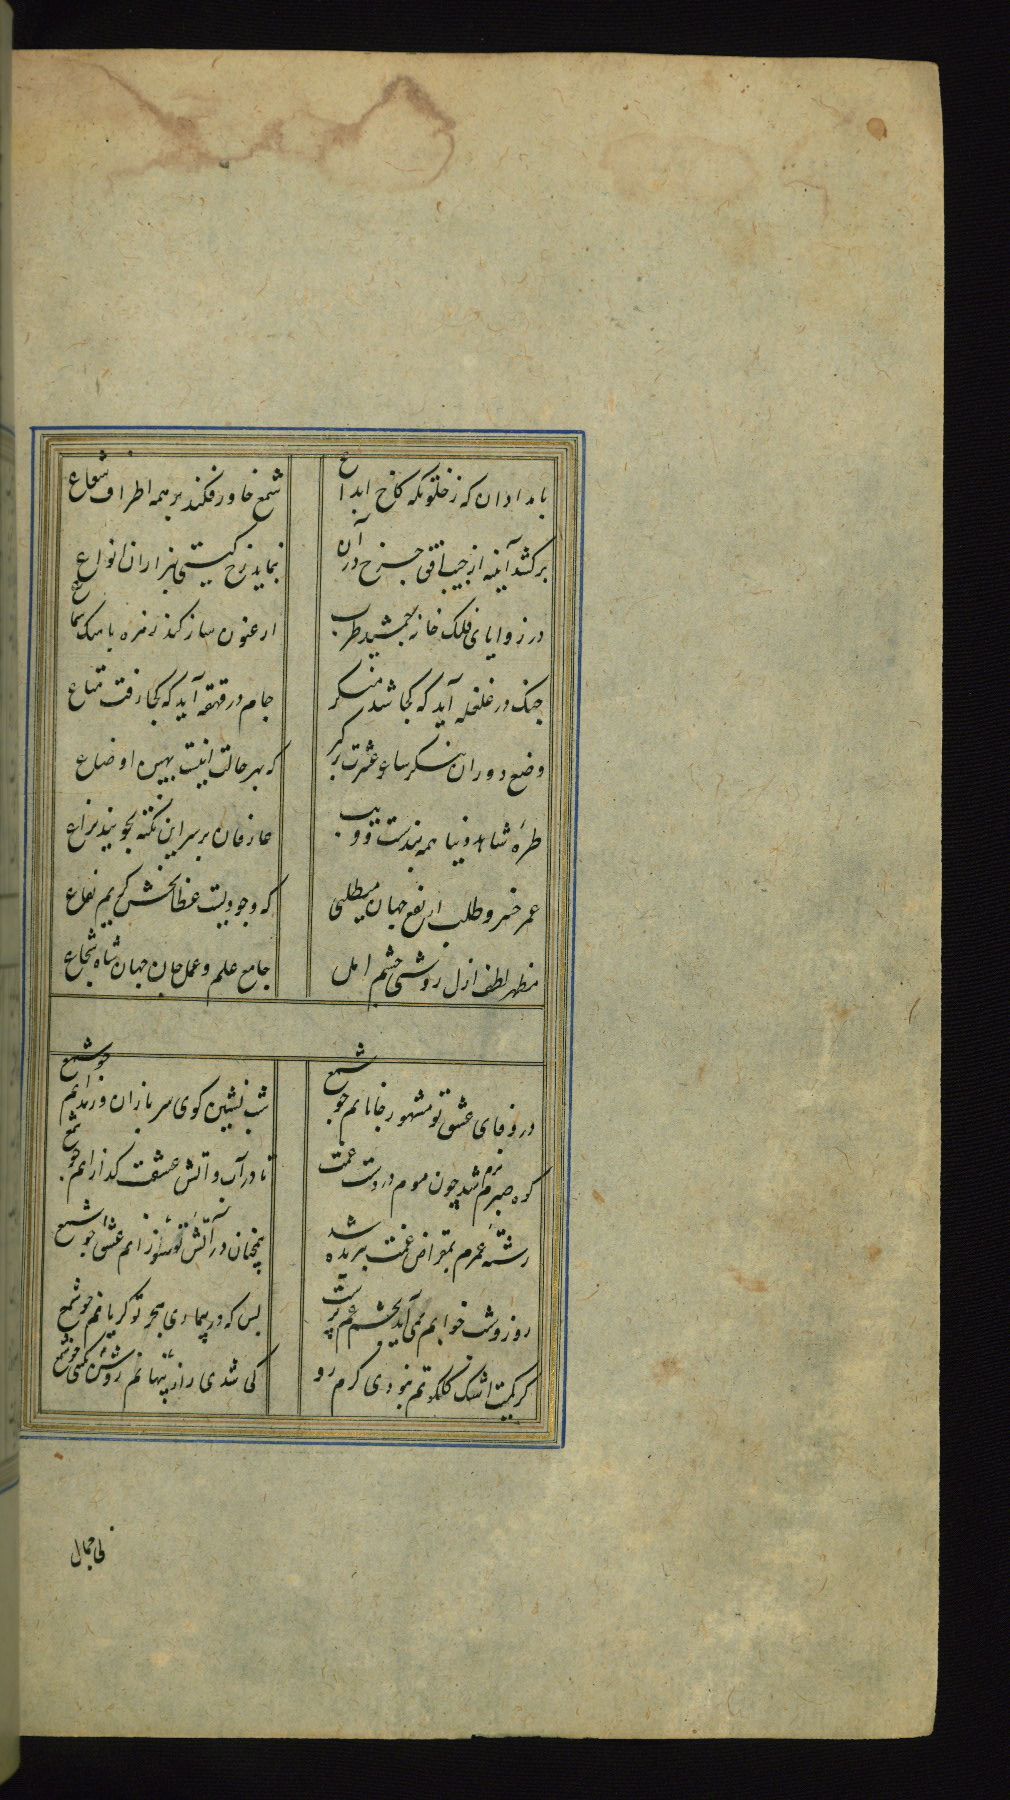 بامدادان که ز خلوتکه کاخ ابداع
شمع خاور فکند بر همه اطراف شعاع
برکشد آینه از جیب افق چرخ در آن
بنماید رخ کیتی بهزاران انواع
در زوایای فلک خانه جمشید طرب
ارغنون ساز کند زهره باهنک سماع
جنک در غلغله آید که کجا شد منکر
جام در قهقهه آید که کجا رفت مناع
وضع دوران بنکر ساغر عشرت برکیر
که بهر حالت اینست بهین اوضاع
طرهٔ شاهد دنیا همه بندست و فریب
عارفان بر سر این نکته نجویند نزاع
عمر خسرو طلب ار نفع جهان میطلبی
که وجودیست عطابخش کریم نفاع
مظهر لطف ازل روشنی چشم امل
جامع علم و عمل جان جهان شاه شجاع
در وفای عشق تو مشهور خوبانم چو شمع
شب نشین کوی سربازان و رندانم چو شمع
کوه صبرم نرم شد چون موم در دست غمت
تا در آب و آتش عشقت کدازانم چو شمع
رشتهٔ عمرم بمقراض غمت ببریده شد
همچنان در آتش تو سوزانم چو شمع
روز و شب خوابم نمی آید بچشم غم پرست
بس که در بیماری هجر تو کریانم چو شمع
کر کمیت اشک کلکونم نبودی کرم رو
کی شدی راز پنهانم روشن بکیتی چو شمع
بی جمال